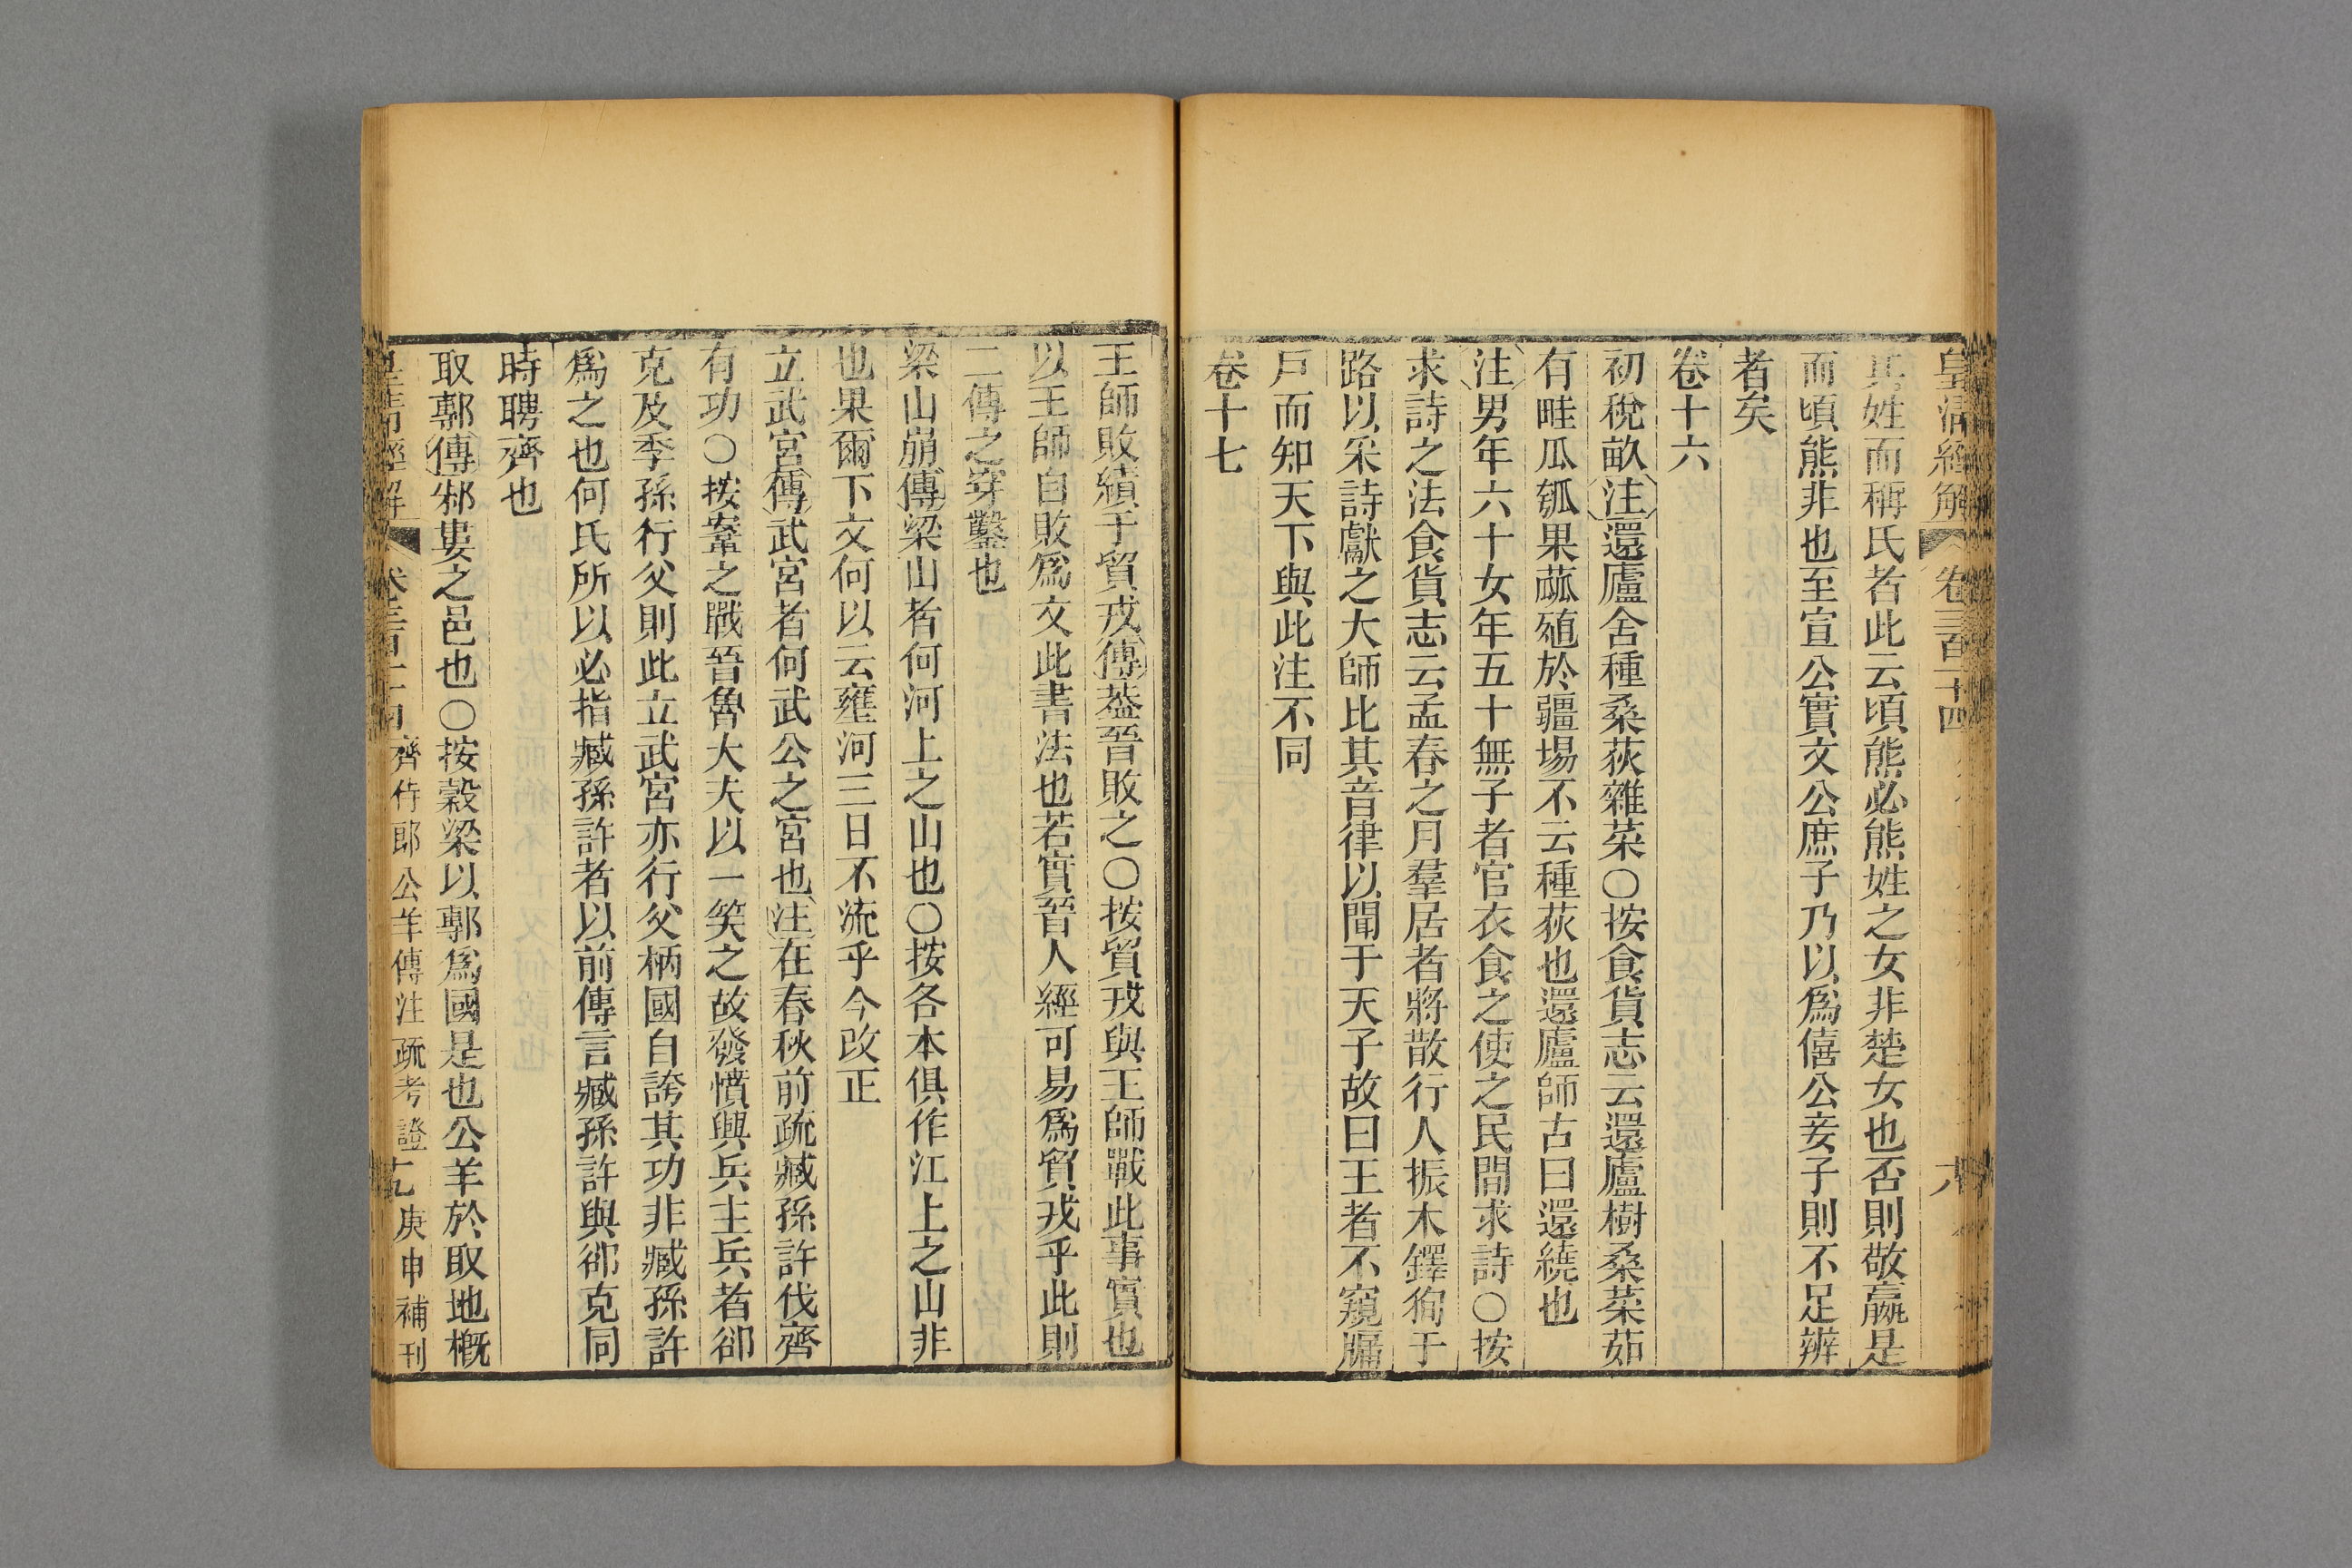 皇清經解 卷三百十四
其姓而稱氏者此云頃熊必熊姓之女非楚女也否則敬嬴是
而頃熊非也至宣公實文公庶子乃以爲僖公妾子則不足辨
者矣
卷十六
初稅畝注還廬舍種桑荻雜菜○按食貨志云還廬樹桑菜茹
有畦瓜瓠果蓏殖於疆場不云種荻也還廬師古曰還繞也
注男年六十女年五十無子者官衣食之使之民間求詩○按
求詩之法食貨志云孟春之月羣居者將散行人振木鐸徇于
路以采詩獻之大師比其音律以聞于天子故曰王者不窺牖
戶而知天下與此注不同
卷十七
王師敗績于貿戎傳葢晉敗之○按貿戎與王師戰此事實也
以王師自敗爲文此書法也若實晉人經可易爲貿戎乎此則
二傳之穿鑿也
梁山崩傳梁山者何河上之山也○按各本俱作江上之山非
也果爾下文何以云壅河三日不流乎今改正
立武宮傳武宮者何武公之宮也注在春秋前疏臧孫許伐齊
有功○按鞌之戰晉魯大夫以一笑之故發憤興兵主兵者郤
克及季孫行父則此立武宮亦行父柄國自誇其功非臧孫許
爲之也何氏所以必指臧孫許者以前傳言臧孫許與郤克同
時聘齊也
取鄟傳邾婁之邑也○按穀梁以鄟爲國是也公羊於取地槪
皇清經解 齊侍郎公羊傳注疏考證 庚申補刊